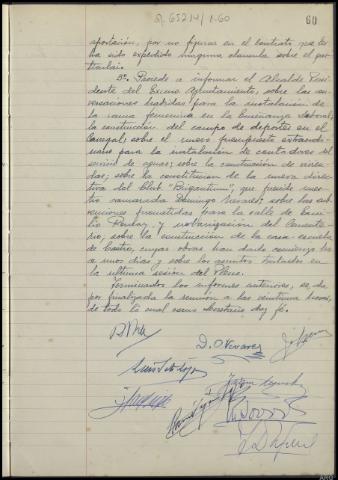 R. 65214/1-60
60
aportación, por no figurar en el contrato, que le
ha sido expedido ninguna clausula sobre el par
ticular.
5º. Procede a informar el Alcalde Presi
dente del Excmo Ayuntamiento, sobre las con
versaciones habidas para la instalación de
la rama femenina en la Enseñanza laboral;
la construcción del campo de deportes en el
Carregal; sobre el nuevo presupuesto extraordi
nario para la instalación de contadores del
servicio de aguas; sobre la construcción de vivien
das; sobre la constitución de la nueva direc
tiva del Club "Brigantium", que preside nues
tro camarada Domingo Nevares; sobre las sub
venciones prometidas para la calle de
y urbanización del Cemente
rio; sobre la construcción de la casa-escuela
de Castro, cuyas obras han dado comienzo ha
ce unos días y sobre los asuntos tratados en
la ultima sesión del Pleno.
Terminados los informes anteriores, se da
por finalizada la reunión a las veintiuna horas,
de todo lo cual como Secretario doy fe.
D. Nevares